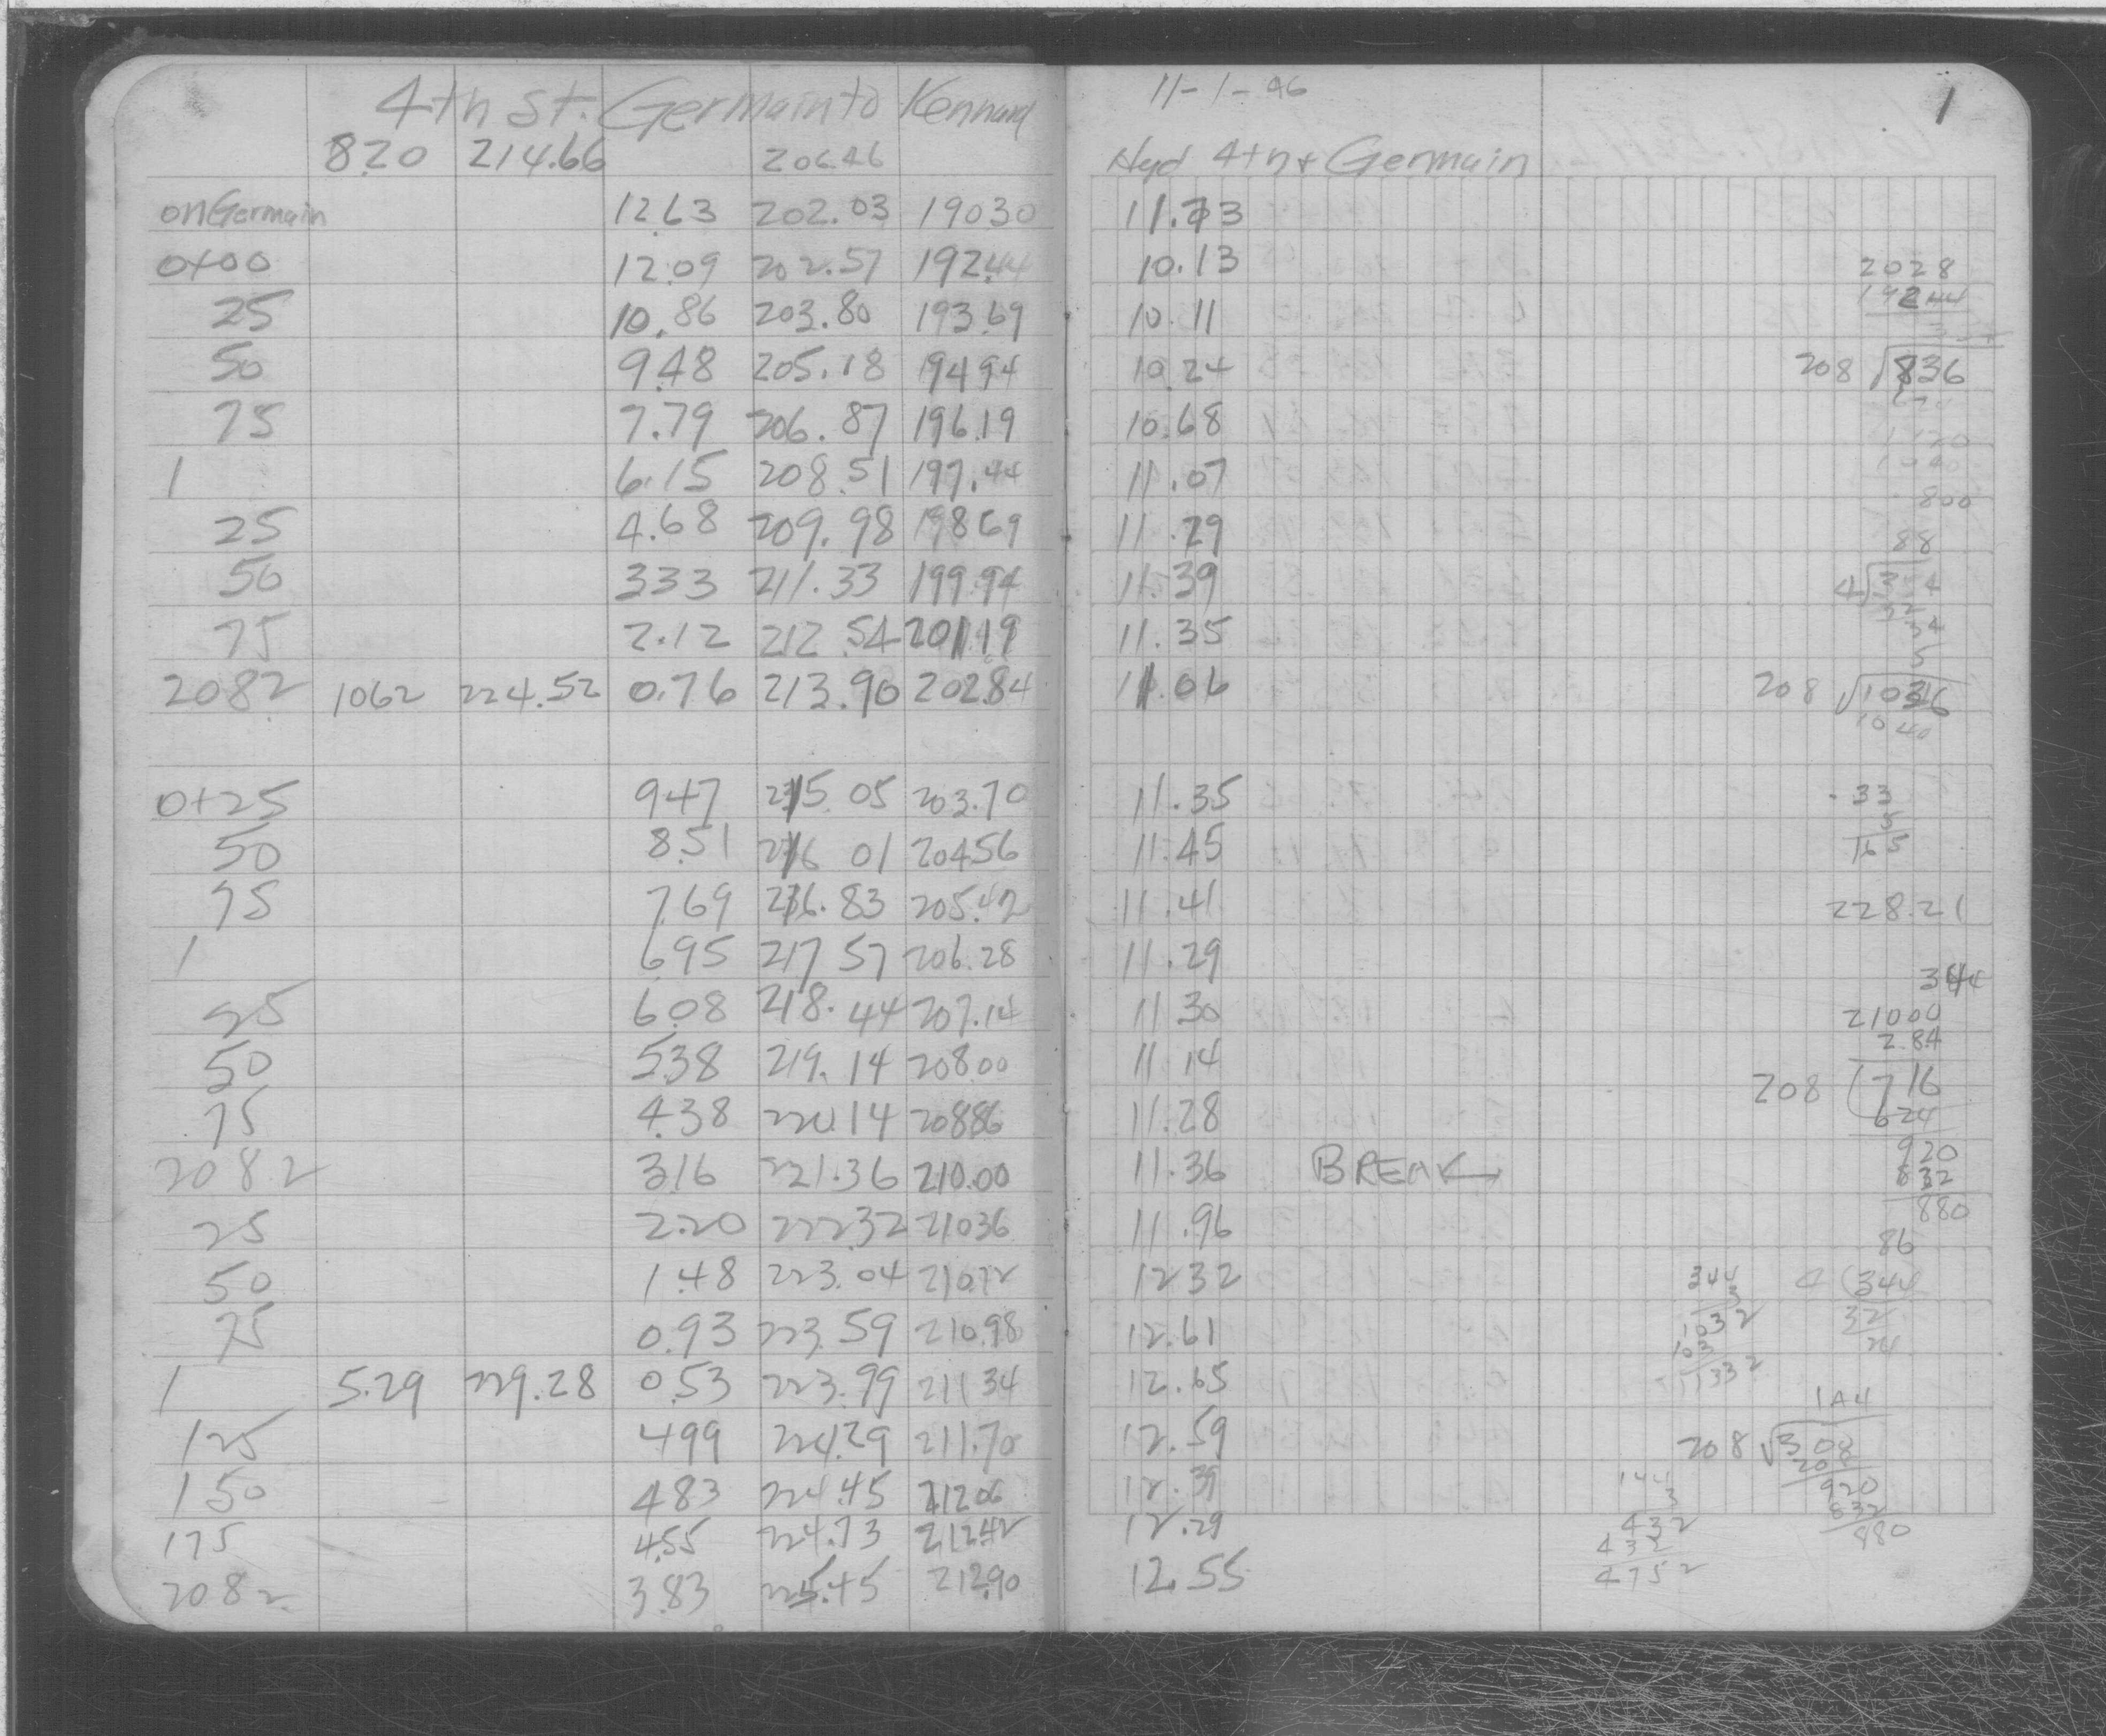 4th St. Germain to Kennard
8.20 214.66 206.46
on Germain 12.63 202.03 19030
0+00 12.09 202.57 192.44
25 10.86 203.80 193.69
50 9.48 205.18 194 94
75 7.79 206.87 196.19
1 6.15 208.51 197.44
25 4.68 209.98 198 69
50 333 211.33 199.94
75 2.12 212.54 201.19
2082 1062 224.52 0.76 213.90 202.84
0+25 947 215.05 203.70
50 8.51 216 01 20456
75 7.69 216.83 205.42
1 6.95 217 57 206.28
25 6.08 218.44 207.14
50 5.38 219.14 208.00
75 4.38 220.14 20886
2082 3.16 221.36 210.00
25 2.20 222.32 21036
50 1.48 223.04 210.72
75 0.93 223.59 210.98
1 5.29 229.28 0.53 223.99 211 34
125 499 224.29 211.70
150 483 224.45 21206
175 4.55 224.73 212.42
2082 3.83 225.45 212.90
11-1-96
1
Hyd 4th + Germain
11.73
10.13
10.11
10.24
10.68
11.07
11.29
11.39
11.35
11.06
11.35
11.45
11.41
11.29
11 30
11 14
11.28
11.36 BREAK
11.96
12 32
12.61
12.65
12.59
12.39
12.29
12.55
2028
192 44
208 836
800
88
4
208 1036
1040
.33
5
165
228.21
344
21000
2.84
208 716
624
920
832
880
86
4 344
32
24
344
3
1032
1032
11332
144
208 308
208
920
832
880
144
3
432
432
4752